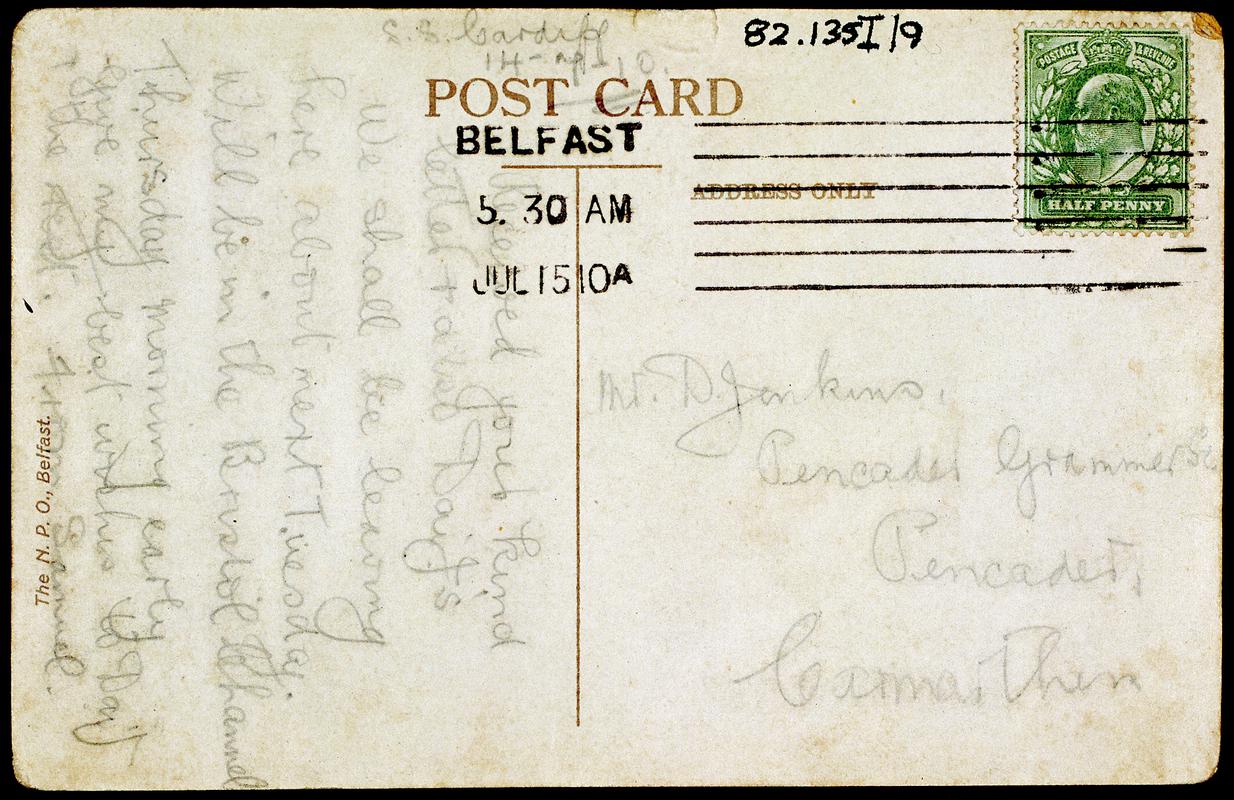 82.135I/9
POSTAGE & REVENUE
HALF PENNY
POST CARD
ADDRESS ONLY
BELFAST
5.30 AM
JUL 15 10A
The N. P. O., Belfast.
S.S. Cardiff
14-7-10.
Received your kind
letter
We shall be leaving
here about next Tuesda.
Will be in the Bristol Channel
Thursday morning early
Give my best wishes to Dayt
& the rest. From Samuel.
Mr. D. Jenkins.
Pencader Grammer Sc
Pencader,
Carmarthen